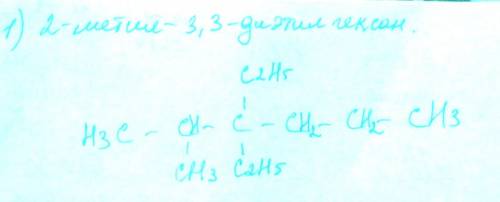 1) 2-метил-3,3-диэтил гексан.
C2H5
H3C - CH - C - CH2 - CH2 - CH3
CH3 C2H5